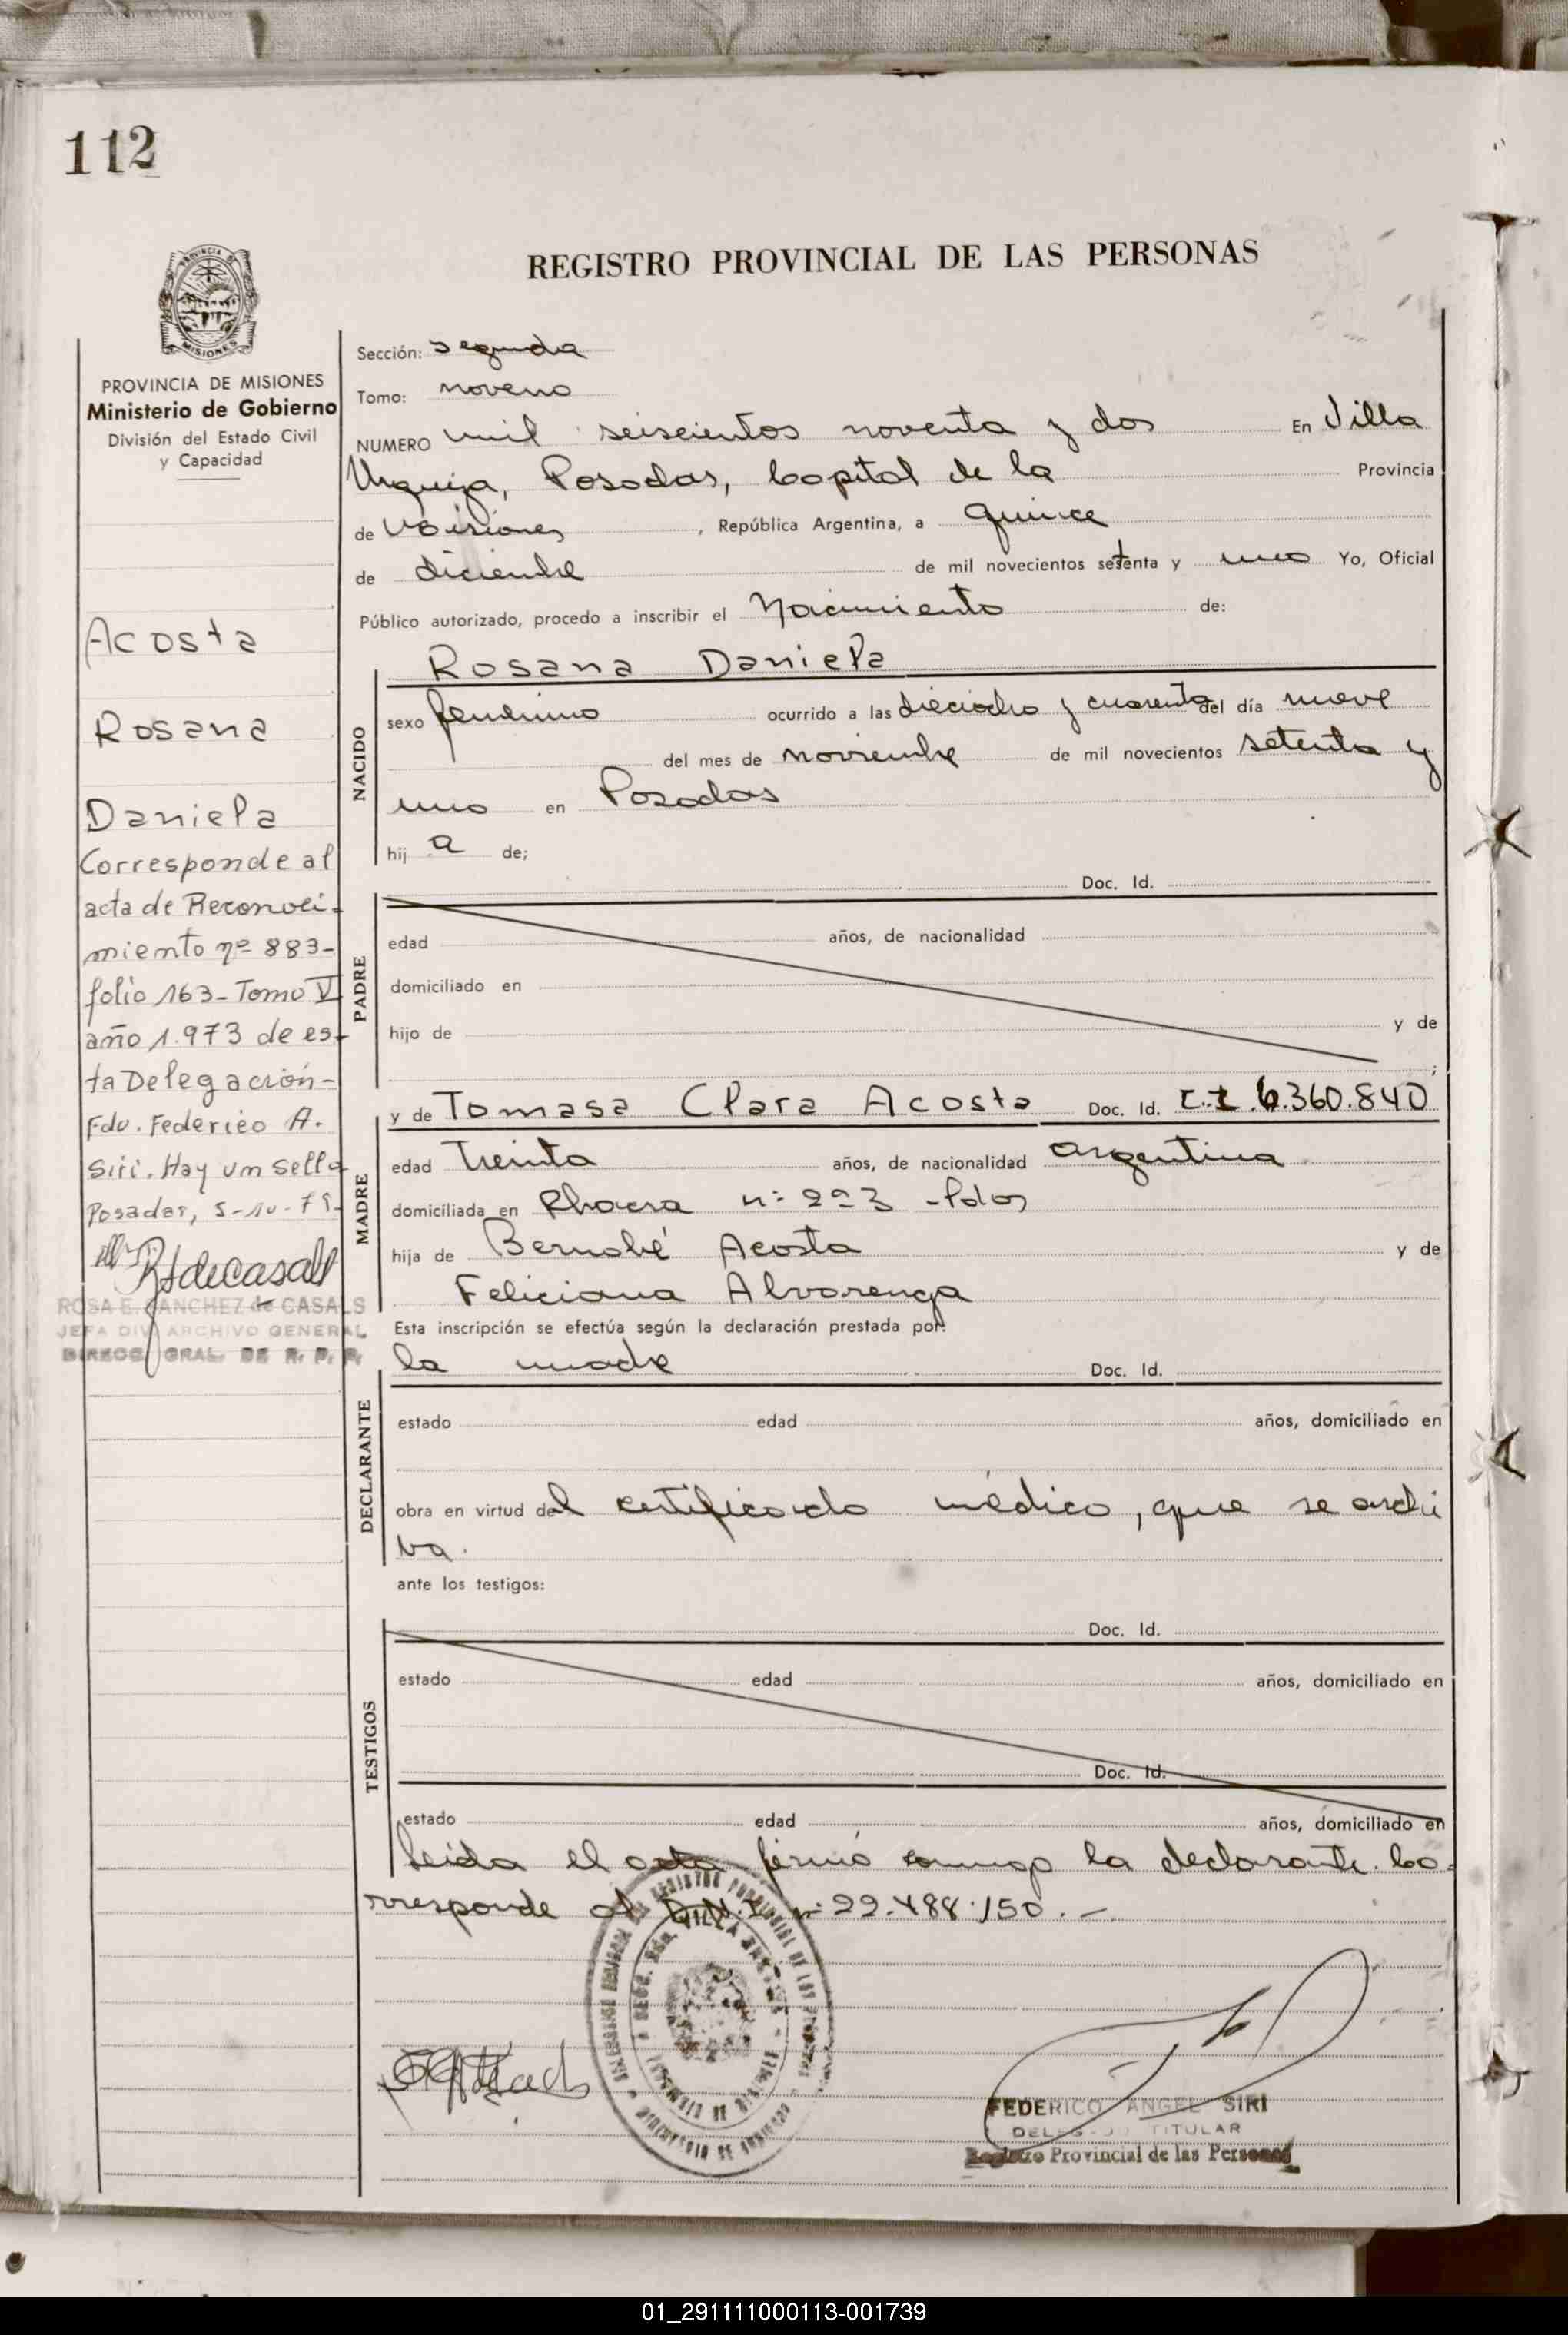 112
REGISTRO PROVINCIAL DE LAS PERSONAS
MISIONES
PROVINCIA DE MISIONES
Ministerio de Gobierno
División del Estado Civil
y Capacidad
Acosta
Rosana
Daniela
Corresponde al
acta de Reconoci-
miento nº 883-
folio 163-Tomo V
año 1.973 de es-
ta Delegación-
Fdo. Federico A.
Siri. Hay un sello
Posadas,
ROSA E. SANCHEZ de CASALS
JEFA DIV ARCHIVO GENERAL
DIRECC. GRAL. DE R. P. P.
Sección: segunda
Tomo: noveno
NUMERO mil seiscientos noventa y dos En Villa
Urquiza, Posadas, Capital de la Provincia
de Misiones, República Argentina, a quince
de diciembre de mil novecientos setenta y uno Yo, Oficial
Público autorizado, procedo a inscribir el Nacimiento de:
Rosana Daniela
NACIDO
sexo femenino ocurrido a las dieciocho y cuarenta del día nueve
del mes de noviembre de mil novecientos setenta y
uno en Posadas
hij a de;
Doc. Id.
PADRE
edad años, de nacionalidad
domiciliado en
hijo de y de
;
MADRE
y de Tomasa Clara Acosta Doc. Id. 6.360.840
edad treinta años, de nacionalidad argentina
domiciliada en nº
hija de Bernabé Acosta y de
Feliciana Alvarenga
Esta inscripción se efectúa según la declaración prestada por:
la madre Doc. Id.
DECLARANTE
estado edad años, domiciliado en
obra en virtud del certificado médico, que se archi
va.
ante los testigos:
Doc. Id.
TESTIGOS
estado edad años, domiciliado en
Doc. Id.
estado edad años, domiciliado en
leida el acta firmó conmigo la declarante. Co-
rresponde al D.N.I. nº 22.488.150.-
FEDERICO ANGEL SIRI
DELEGADO TITULAR
Registro Provincial de las Personas
01_291111000113-001739